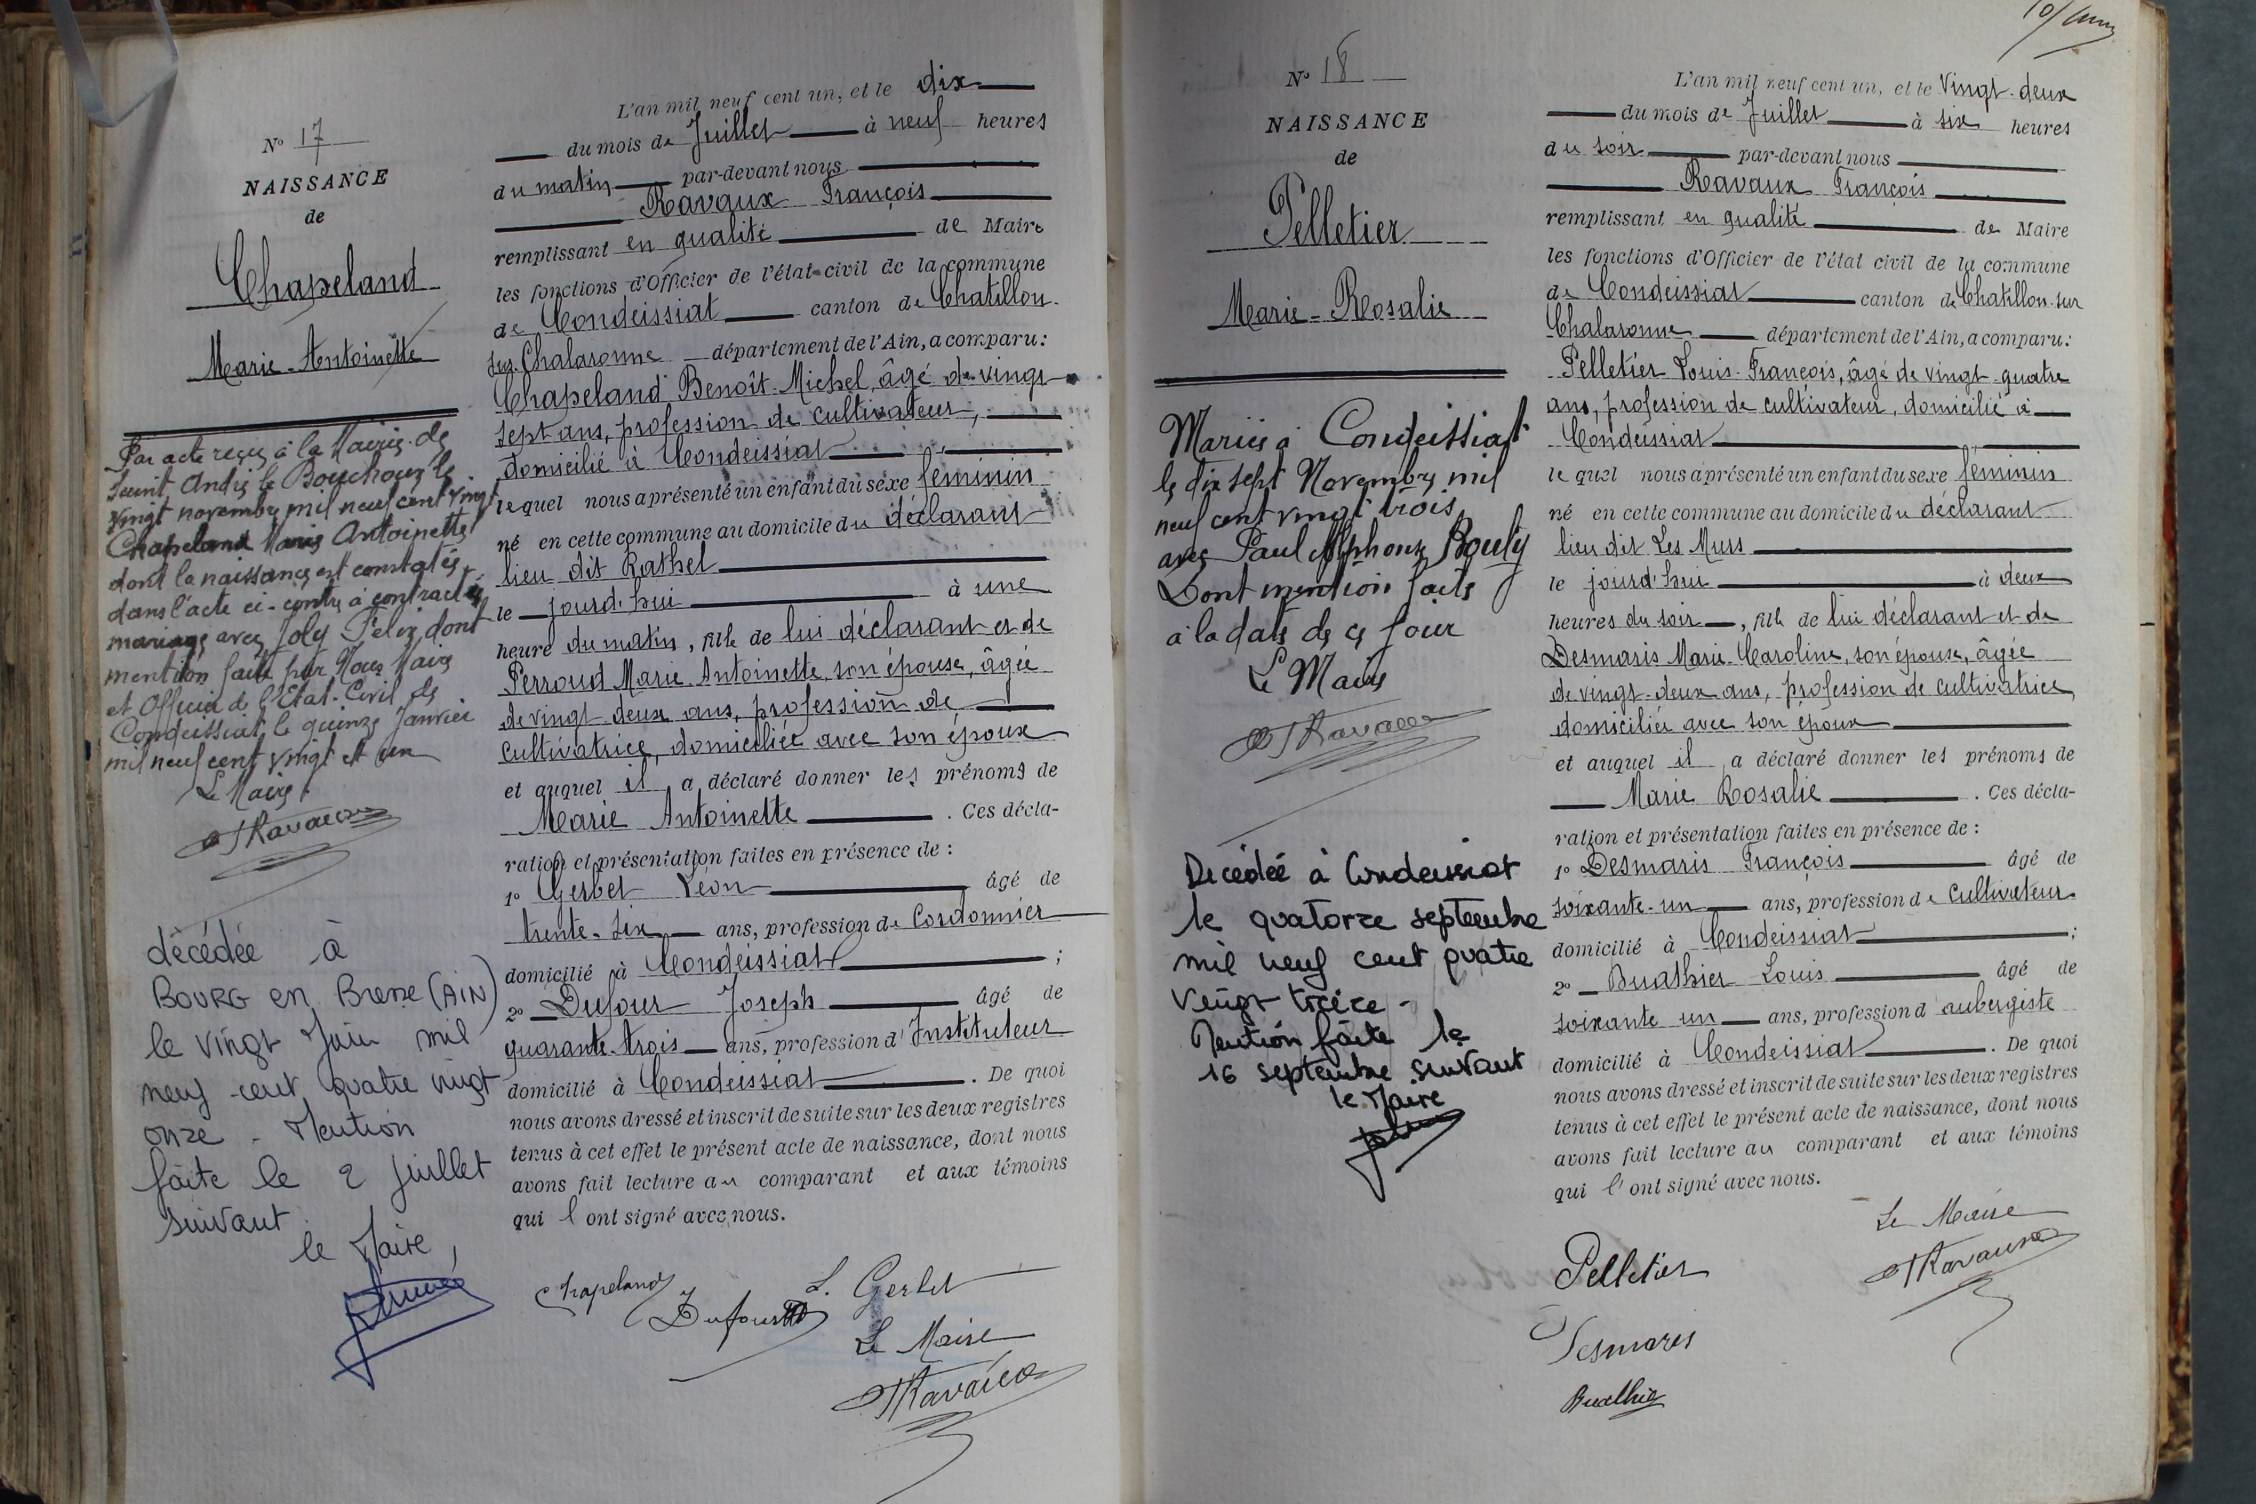 N° 17
NAISSANCE
de
Chapeland
Marie-Antoinette
Par acte reçu à la Mairie de
Saint André le Bouchoux le
vingt novembre mil neuf cent vingt
Chapeland Marie Antoinette
dont la naissance est constatée
dans l'acte ci-contre a contracté
mariage avec Joly Félix, dont
mention faite par Nous Maire
et Officier de l'Etat-Civil de
Condeissiat le quinze Janvier
mil neuf cent vingt et un
Le Maire
décédée à
BOURG en Bresse (AIN)
le vingt Juin mil
neuf cent quatre vingt
onze - Mention
faite le 2 juillet
suivant.
le Maire,
L'an mil neuf cent un, et le dix
du mois de Juillet à neuf heures
du matin par-devant nous
Ravaux François
remplissant en qualité de Maire
les fonctions d'Officier de l'état-civil de la commune
de Condeissiat canton de Chatillon-
sur-Chalaronne département de l'Ain, a comparu:
Chapeland Benoît-Michel, âgé de vingt-
sept ans, profession de cultivateur,
domicilié à Condeissiat
lequel nous a présenté un enfant du sexe féminin
né en cette commune au domicile du déclarant
lieu dit Rathel
le jourd'hui à une
heure du matin, fille de lui déclarant et de
Perroud Marie Antoinette, son épouse, âgée
de vingt deux ans, profession de
cultivatrice, domiciliée avec son époux
et auquel il a déclaré donner les prénoms de
Marie Antoinette. Ces décla-
ration et présentation faites en présence de :
1° Gerbet Léon âgé de
trente-six ans, profession de Cordonnier
domicilié à Condeissiat ;
2° Dufour Joseph âgé de
quarante-trois ans, profession d'Instituteur
domicilié à Condeissiat. De quoi
nous avons dressé et inscrit de suite sur les deux registres
tenus à cet effet le présent acte de naissance, dont nous
avons fait lecture au comparant et aux témoins
qui l'ont signé avec nous.
Chapeland
Dufour
L. Gerbet
Le Maire
FRavaux
N° 18
NAISSANCE
de
Pelletier
Marie-Rosalie
Mariée à Condeissiat
le dix sept Novembre mil
neuf cent vingt trois
avec Paul Alphonse Bouly
Dont mention faite
à la date de ce jour
Le Maire
FRavaux
Décédée à Condeissiat
le quatorze septembre
mil neuf cent quatre
vingt treize -
Mention faite le
16 septembre suivant
le Maire
L'an mil neuf cent un, et le Vingt-deux
du mois de Juillet à six heures
du soir par-devant nous
Ravaux François
remplissant en qualité de Maire
les fonctions d'Officier de l'état civil de la commune
de Condeissiat canton de Chatillon-sur
Chalaronne département de l'Ain, a comparu:
Pelletier Louis-François, âgé de vingt-quatre
ans, profession de cultivateur, domicilié à
Condeissiat
lequel nous a présenté un enfant du sexe féminin
né en cette commune au domicile du déclarant
lieu dit Les Murs
le jourd'hui à deux
heures du soir, fille de lui déclarant et de
Desmaris Marie-Caroline, son épouse, âgée
de vingt-deux ans, profession de cultivatrice,
domiciliée avec son époux
et auquel il a déclaré donner les prénoms de
Marie Rosalie. Ces décla-
ration et présentation faites en présence de :
1° Desmaris François âgé de
soixante-un ans, profession de cultivateur
domicilié à Condeissiat ;
2° Buathier Louis âgé de
soixante un ans, profession d'aubergiste
domicilié à Condeissiat. De quoi
nous avons dressé et inscrit de suite sur les deux registres
tenus à cet effet le présent acte de naissance, dont nous
avons fait lecture au comparant et aux témoins
qui l'ont signé avec nous.
Le Maire
FRavaux
Pelletier
Desmares
Buathier